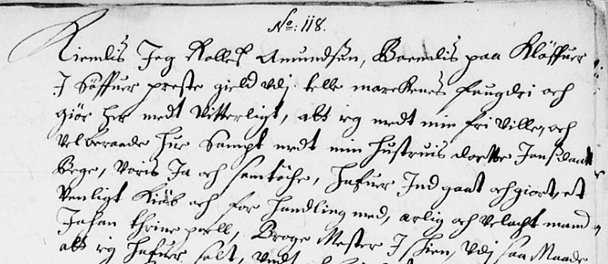 No: 118.
Kiendis Jeg Rollef Amundsøn, Boendis paa Kløffuer
J Søffuer preste gield vdj telle marckens fougdri och
giør her medt Vitterligt, att ieg medt min fri Villie, och
Velberaade hue Sampt medt min hustruis dorette Jansdaatter
Bege, Voris Ja och samtøche, hafuer Indgaat och giort, et
Venligt Kiøb och for handling med, ærlig och velacht mand
Johan thrine poell, Borge Mester J Schien, Vdj saa Maade
att ieg hafuer solt,